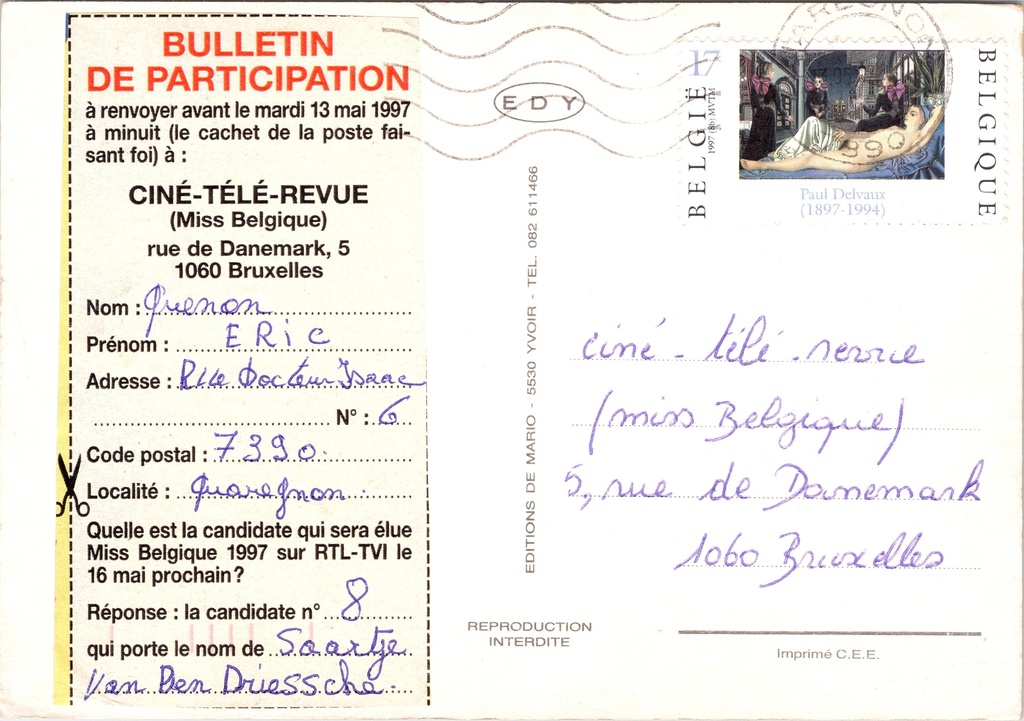 BULLETIN
DE PARTICIPATION
à renvoyer avant le mardi 13 mai 1997
à minuit (le cachet de la poste fai-
sant foi) à :
CINÉ-TÉLÉ-REVUE
(Miss Belgique)
rue de Danemark, 5
1060 Bruxelles
Nom : Quenon
Prénom : ERiC
Adresse : Rue Docteur Isaac
N° : 6
Code postal : 7390
Localité : Quaregnon
Quelle est la candidate qui sera élue
Miss Belgique 1997 sur RTL-TVI le
16 mai prochain ?
Réponse : la candidate n° 8
qui porte le nom de Saartje
Van Den Driessche.
EDY
EDITIONS DE MARIO - 5530 YVOIR - TEL. 082 611466
REPRODUCTION
INTERDITE
17
BELGIË
1997 (8b) MVTM
BELGIQUE
Paul Delvaux
(1897-1994)
AREGNON
ciné - télé - revue
(miss Belgique)
5, rue de Danemark
1060 Bruxelles
Imprimé C.E.E.